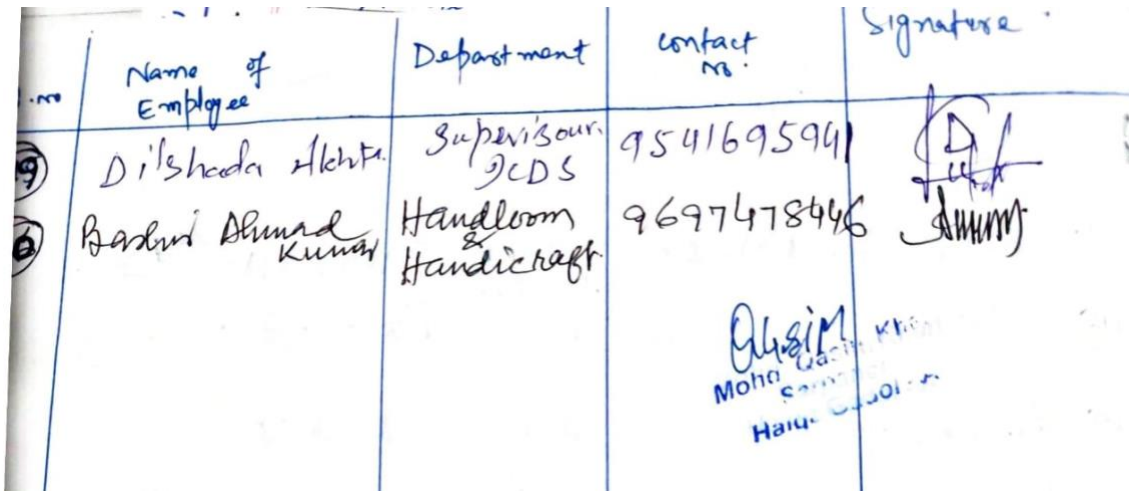 Name of Employee Department contact no. Signature
Dilshada Akhta Supervisour. ICDS 9541695941
Ahmad Kumar Handloom & Handicraft 9697478446
Qasim
Mohd Qasim